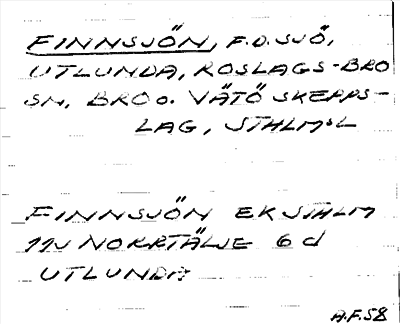 FINNSJÖN, F.D. SJÖ,
UTLUNDA, ROSLAGS-BRO
SN, BRO o. VÄTÖ SKEPPS-
LAG, STHLM:S L
FINNSJÖN EK STHLM
11J NORRTÄLJE 6 d
UTLUNDA
A.F. 58